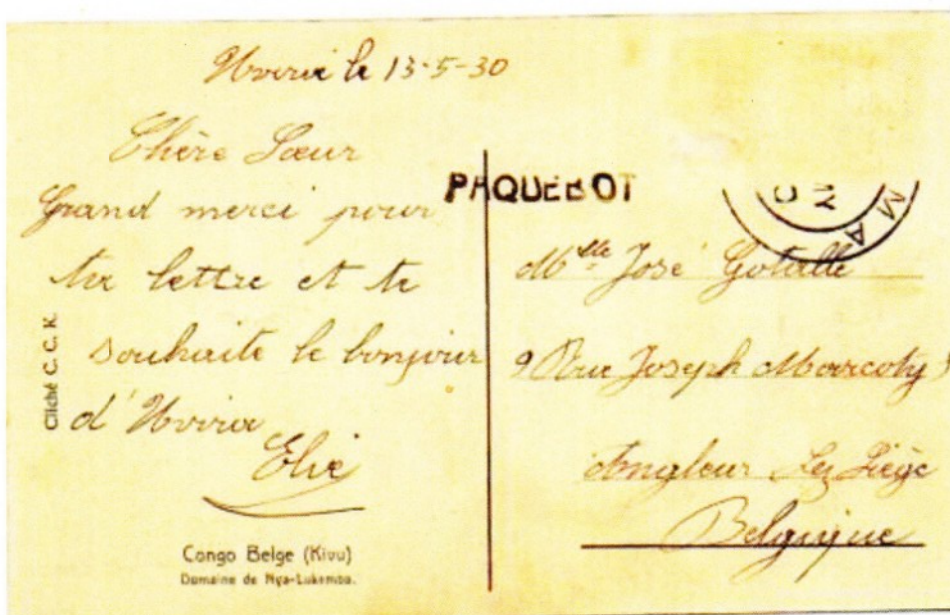 Uvira le 13-5-30
Chère Sœur
Grand merci pour
ta lettre et te
souhaite le bonjour
d'Uvira
Elie
Cliché C. C. K.
Congo Belge (Kivu)
Domaine de Nya-Lukemba.
PAQUEBOT
M A
Mlle José
9 Rue Joseph Marcoty 9
Angleur Lez Liège
Belgique